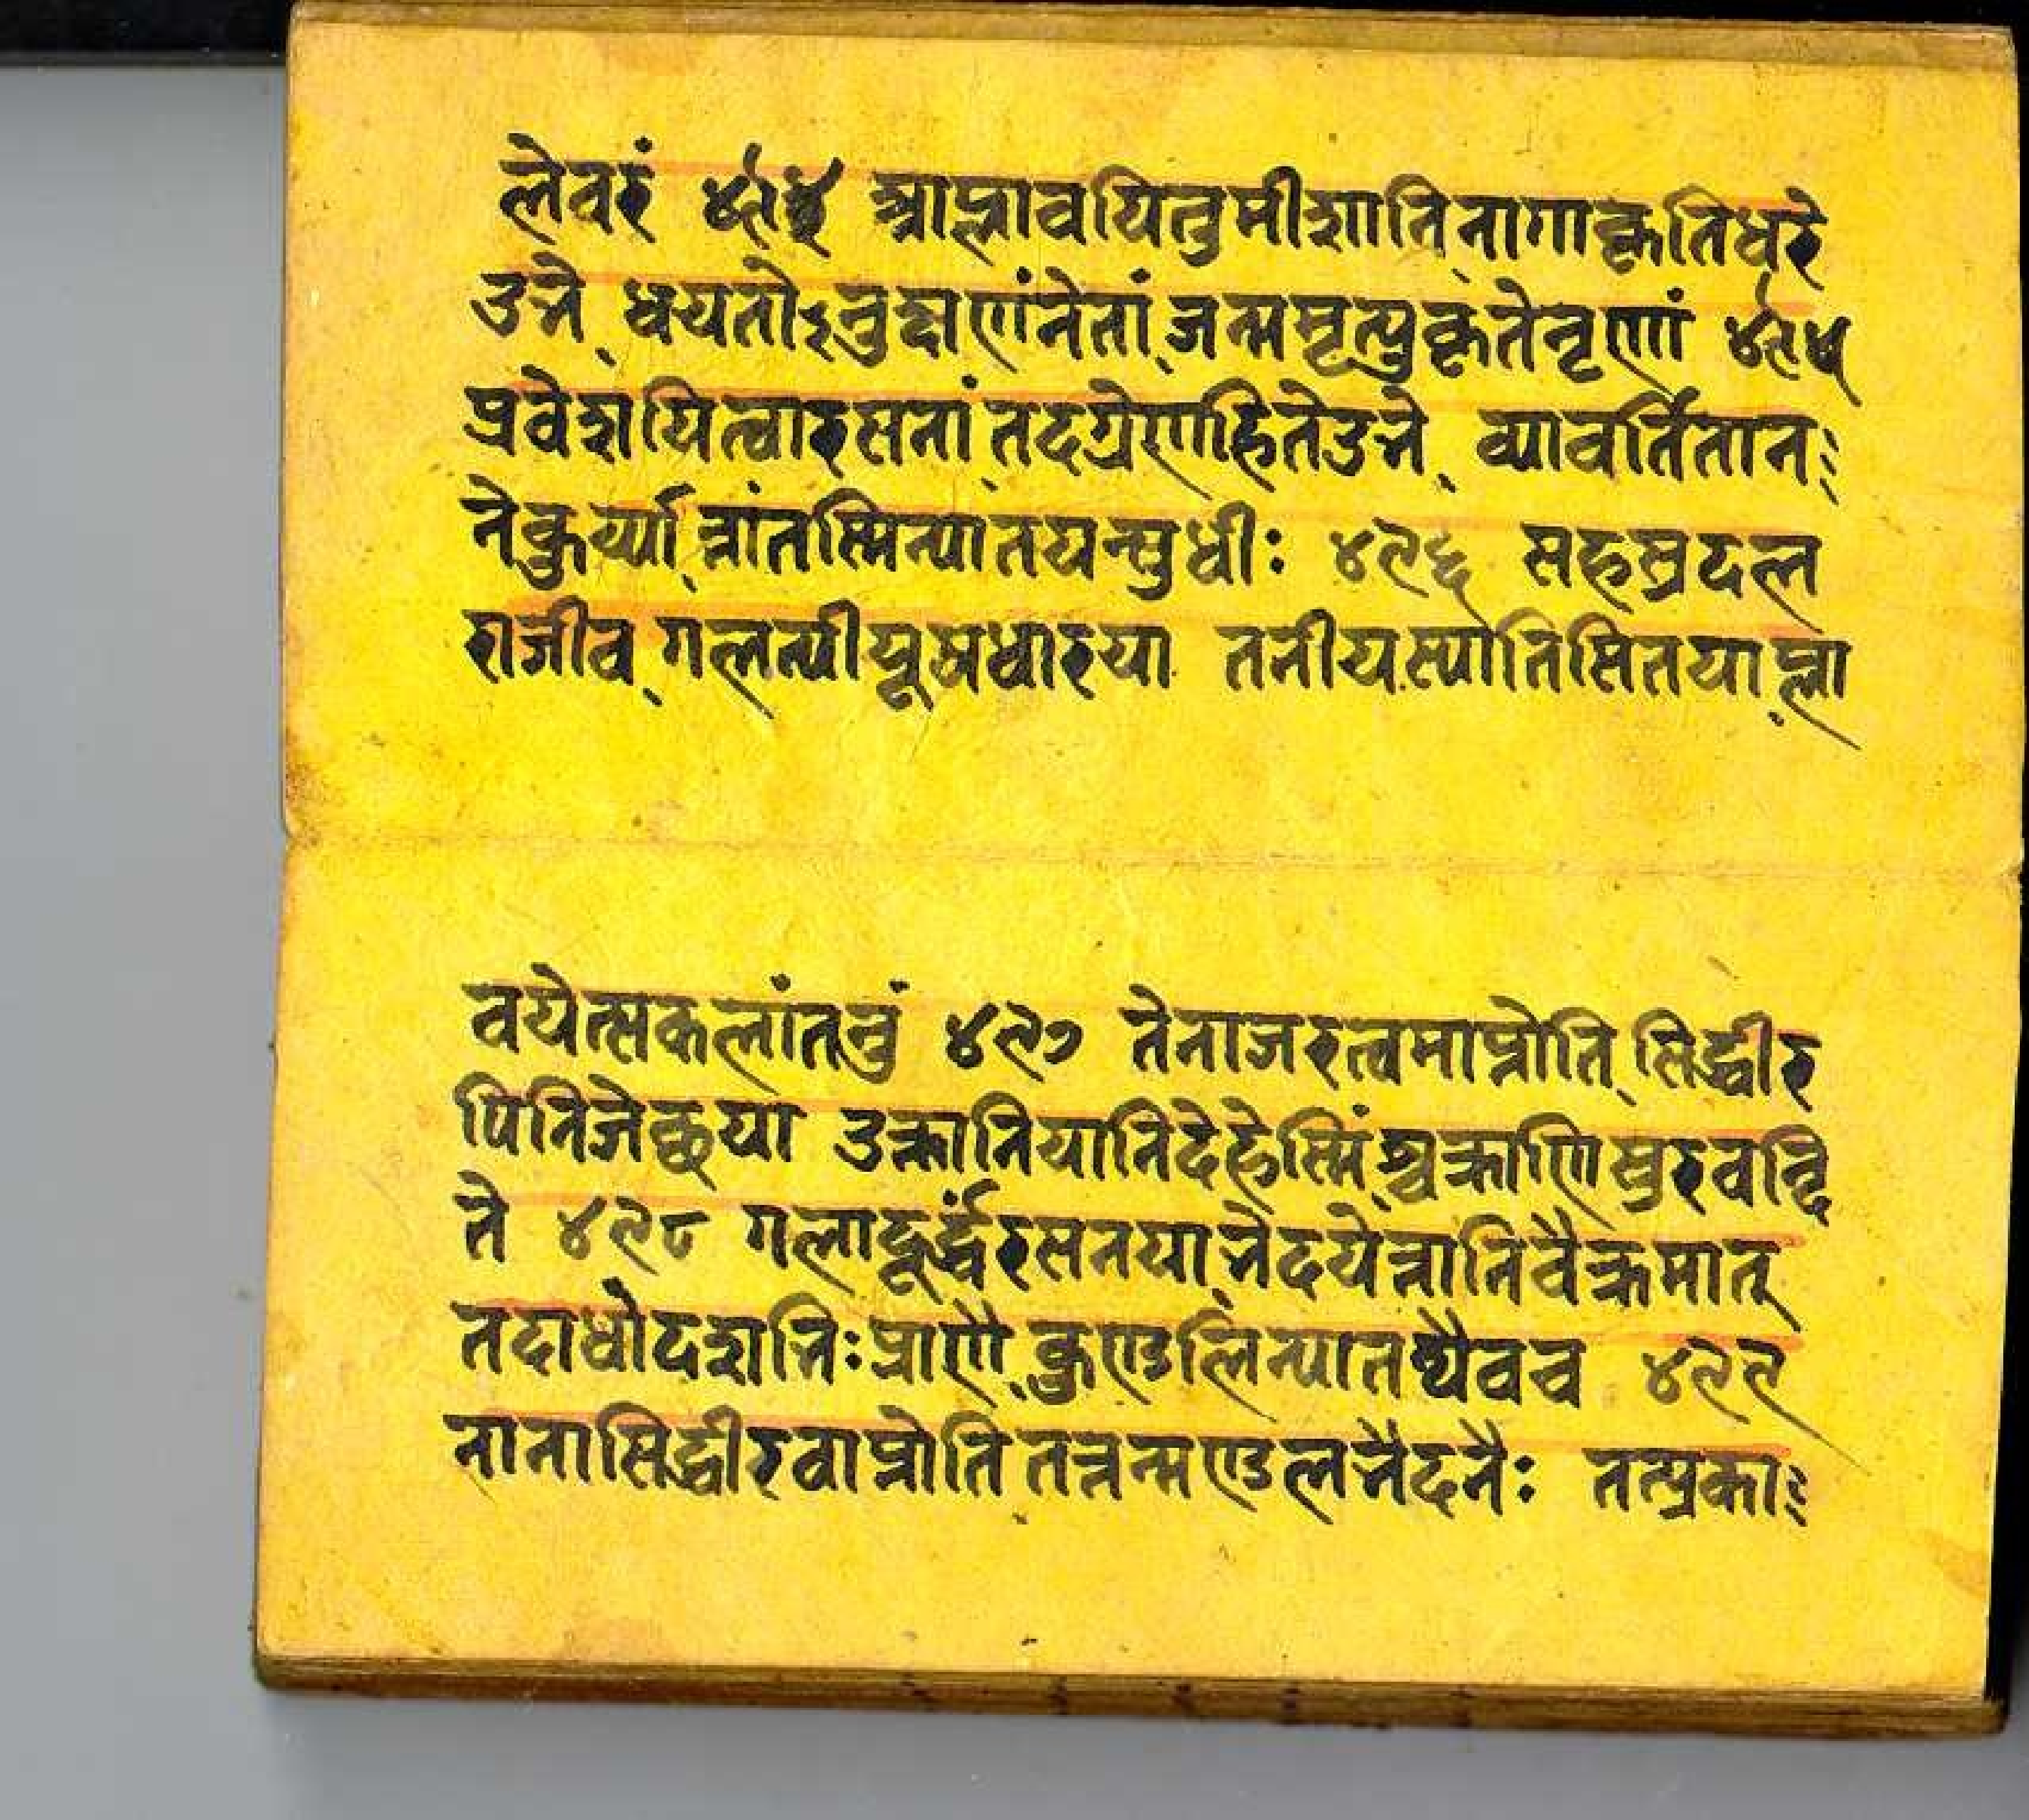 लेवरं ४९४ आप्लावयितुमीशाति नागाकृतिधरे
उभे ध्ययतोऽनुद्राणंनेतां जन्ममृत्युकृतेनृणां ४९५
प्रवेशयित्वारसनां तदग्रेणहितेउभे व्यावर्तितान
नेकुर्य्या न्नांतस्मिन्यातयन्सुधीः ४९६ सहस्रदल
राजीव गलत्पीयूषधारया तनीयस्यातिसितया प्ला
वयेत्सकलांतनुं ४९७ तेनाजरत्वमाप्नोति सिद्धीर
पिनिजेछया उक्तानियानिदेहेस्मिं श्चक्राणिसुरवन्दि
ते ४९८ गलादूर्द्ध्वंरसनया भेदयेत्तानिवैक्रमात्
तदाधोदशभिःप्राणै कुण्डलिन्यातथैवच ४९९
नानासिद्धीरवाप्नोति तत्तन्मण्डलभेदनैः तत्प्रका